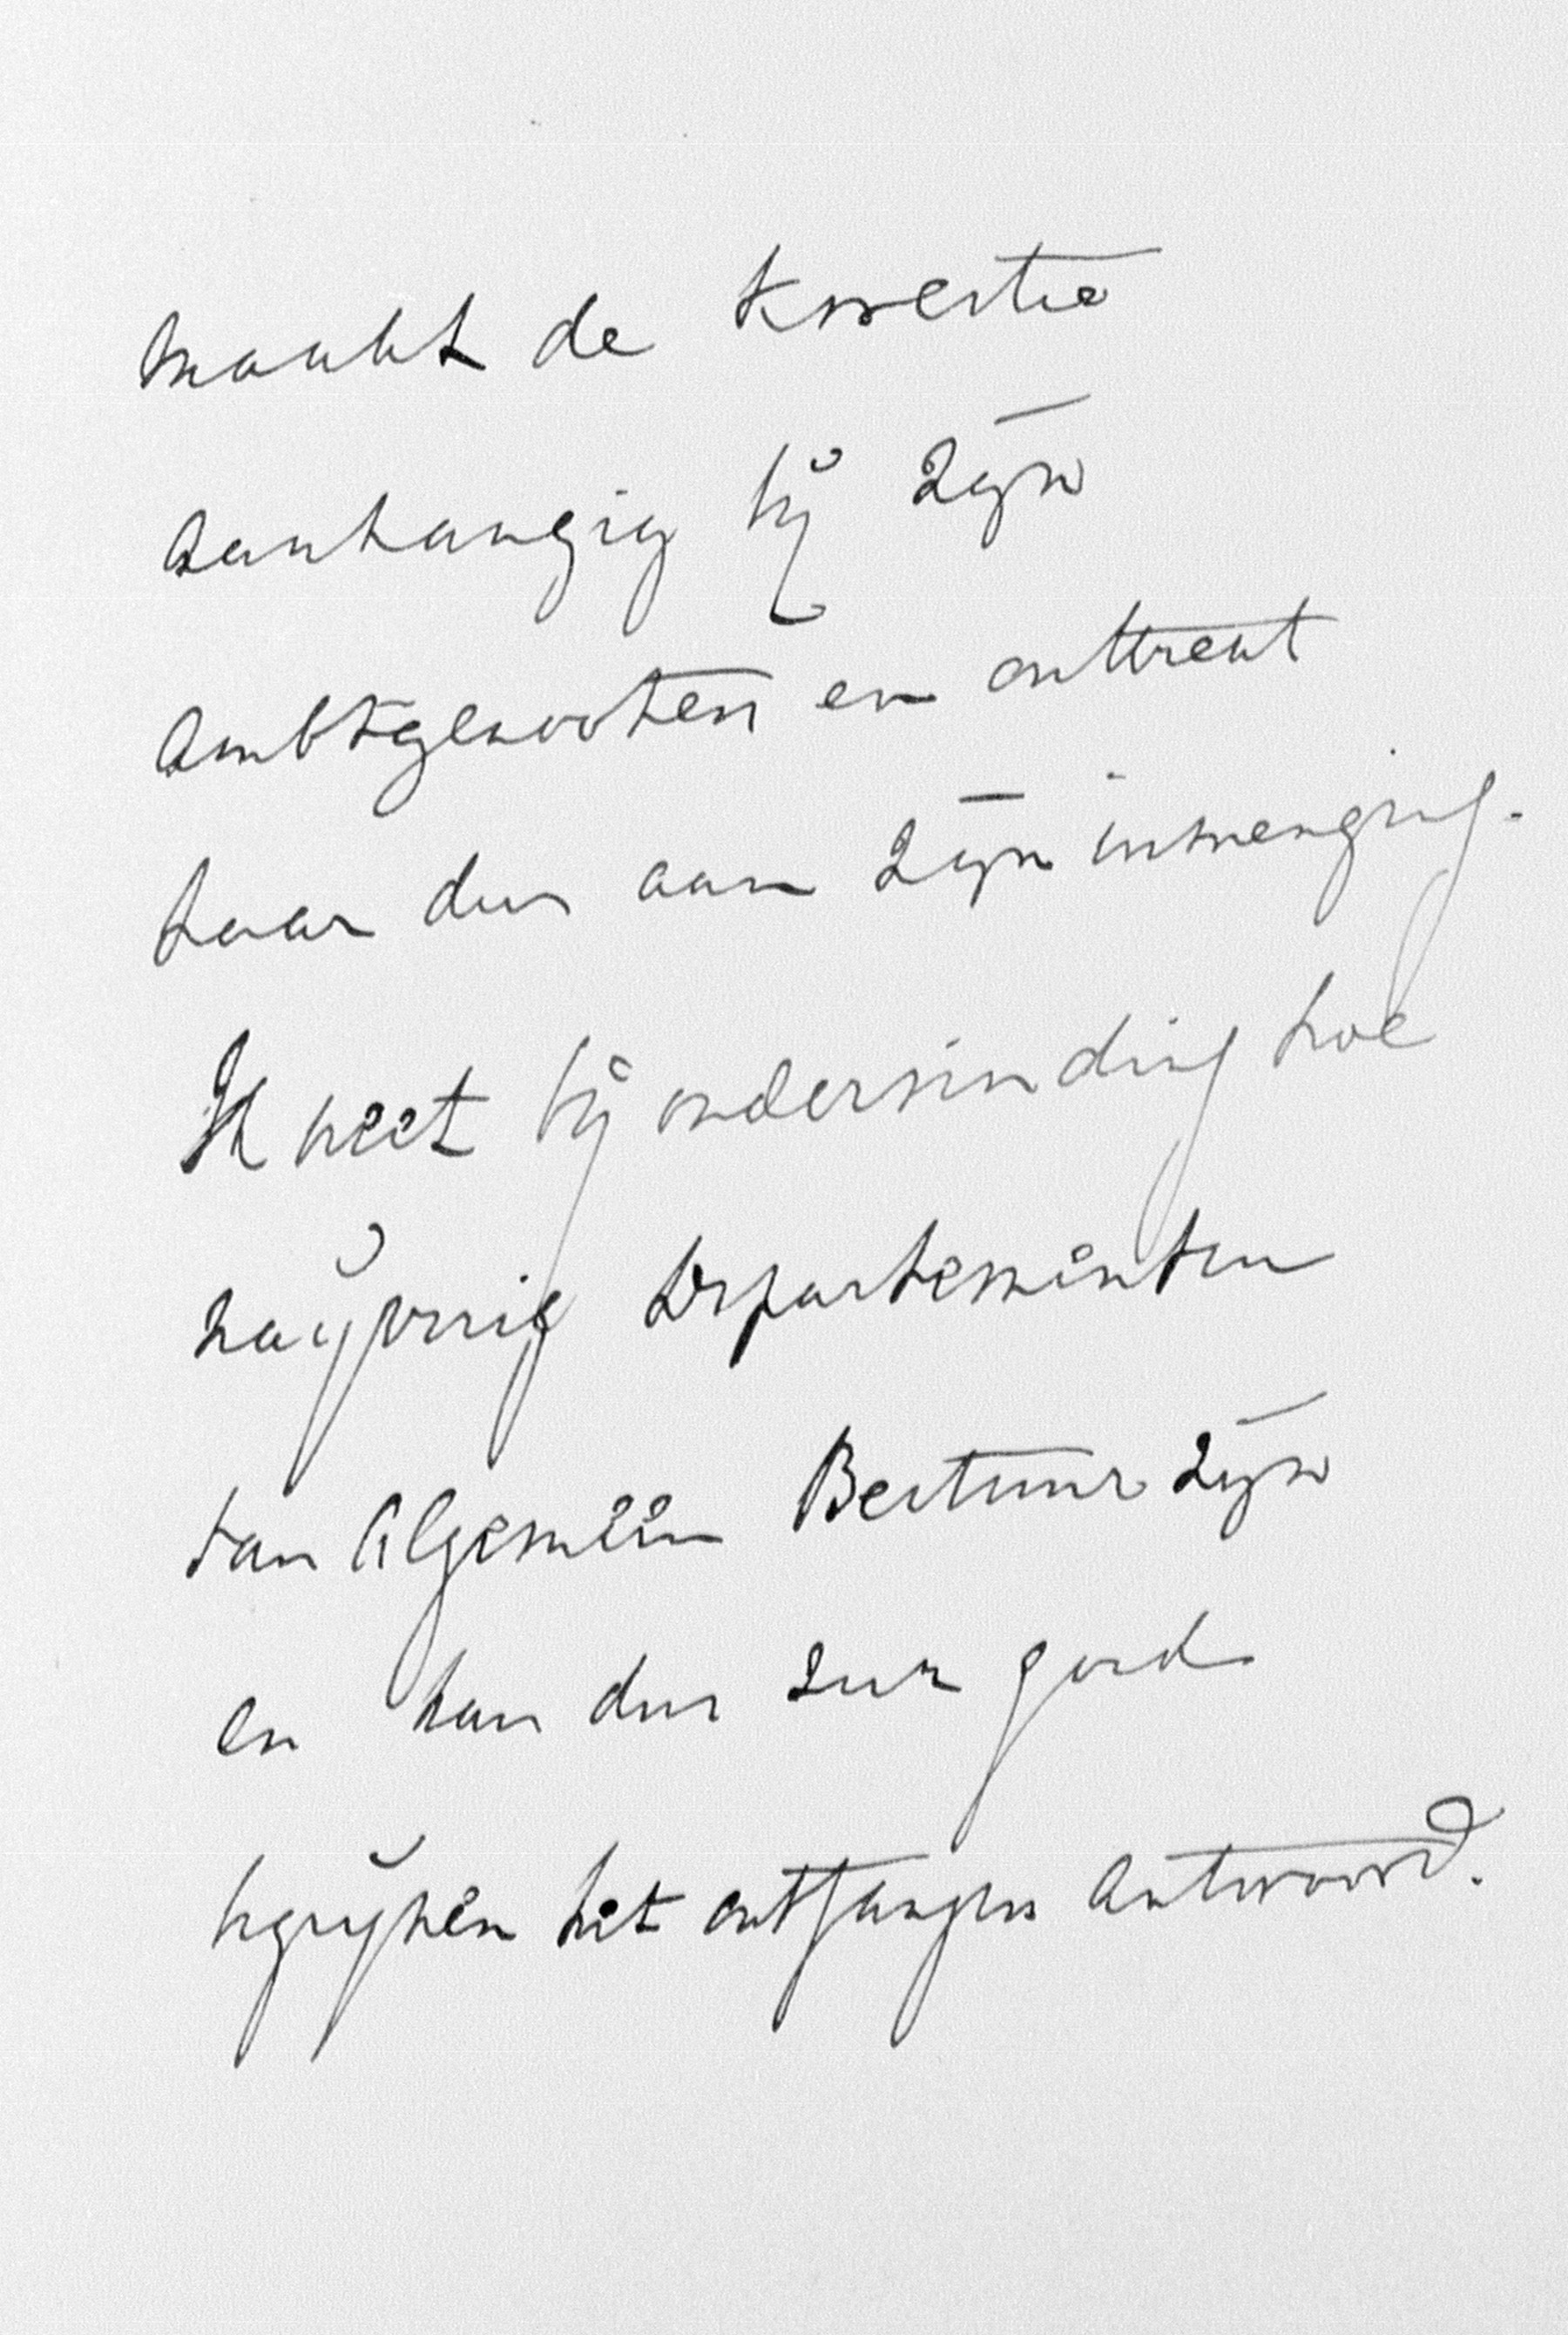 maakt de kwestie
aanhangig bij zijn
ambtgenooten en onttrekt
haar dus aan zijn inmenging.
Ik weet bij ondervinding hoe
naijverig departementen
van Algemeen Bestuur zijn
en kan dus zeer goed
begrijpen het ontfangen antwoord.